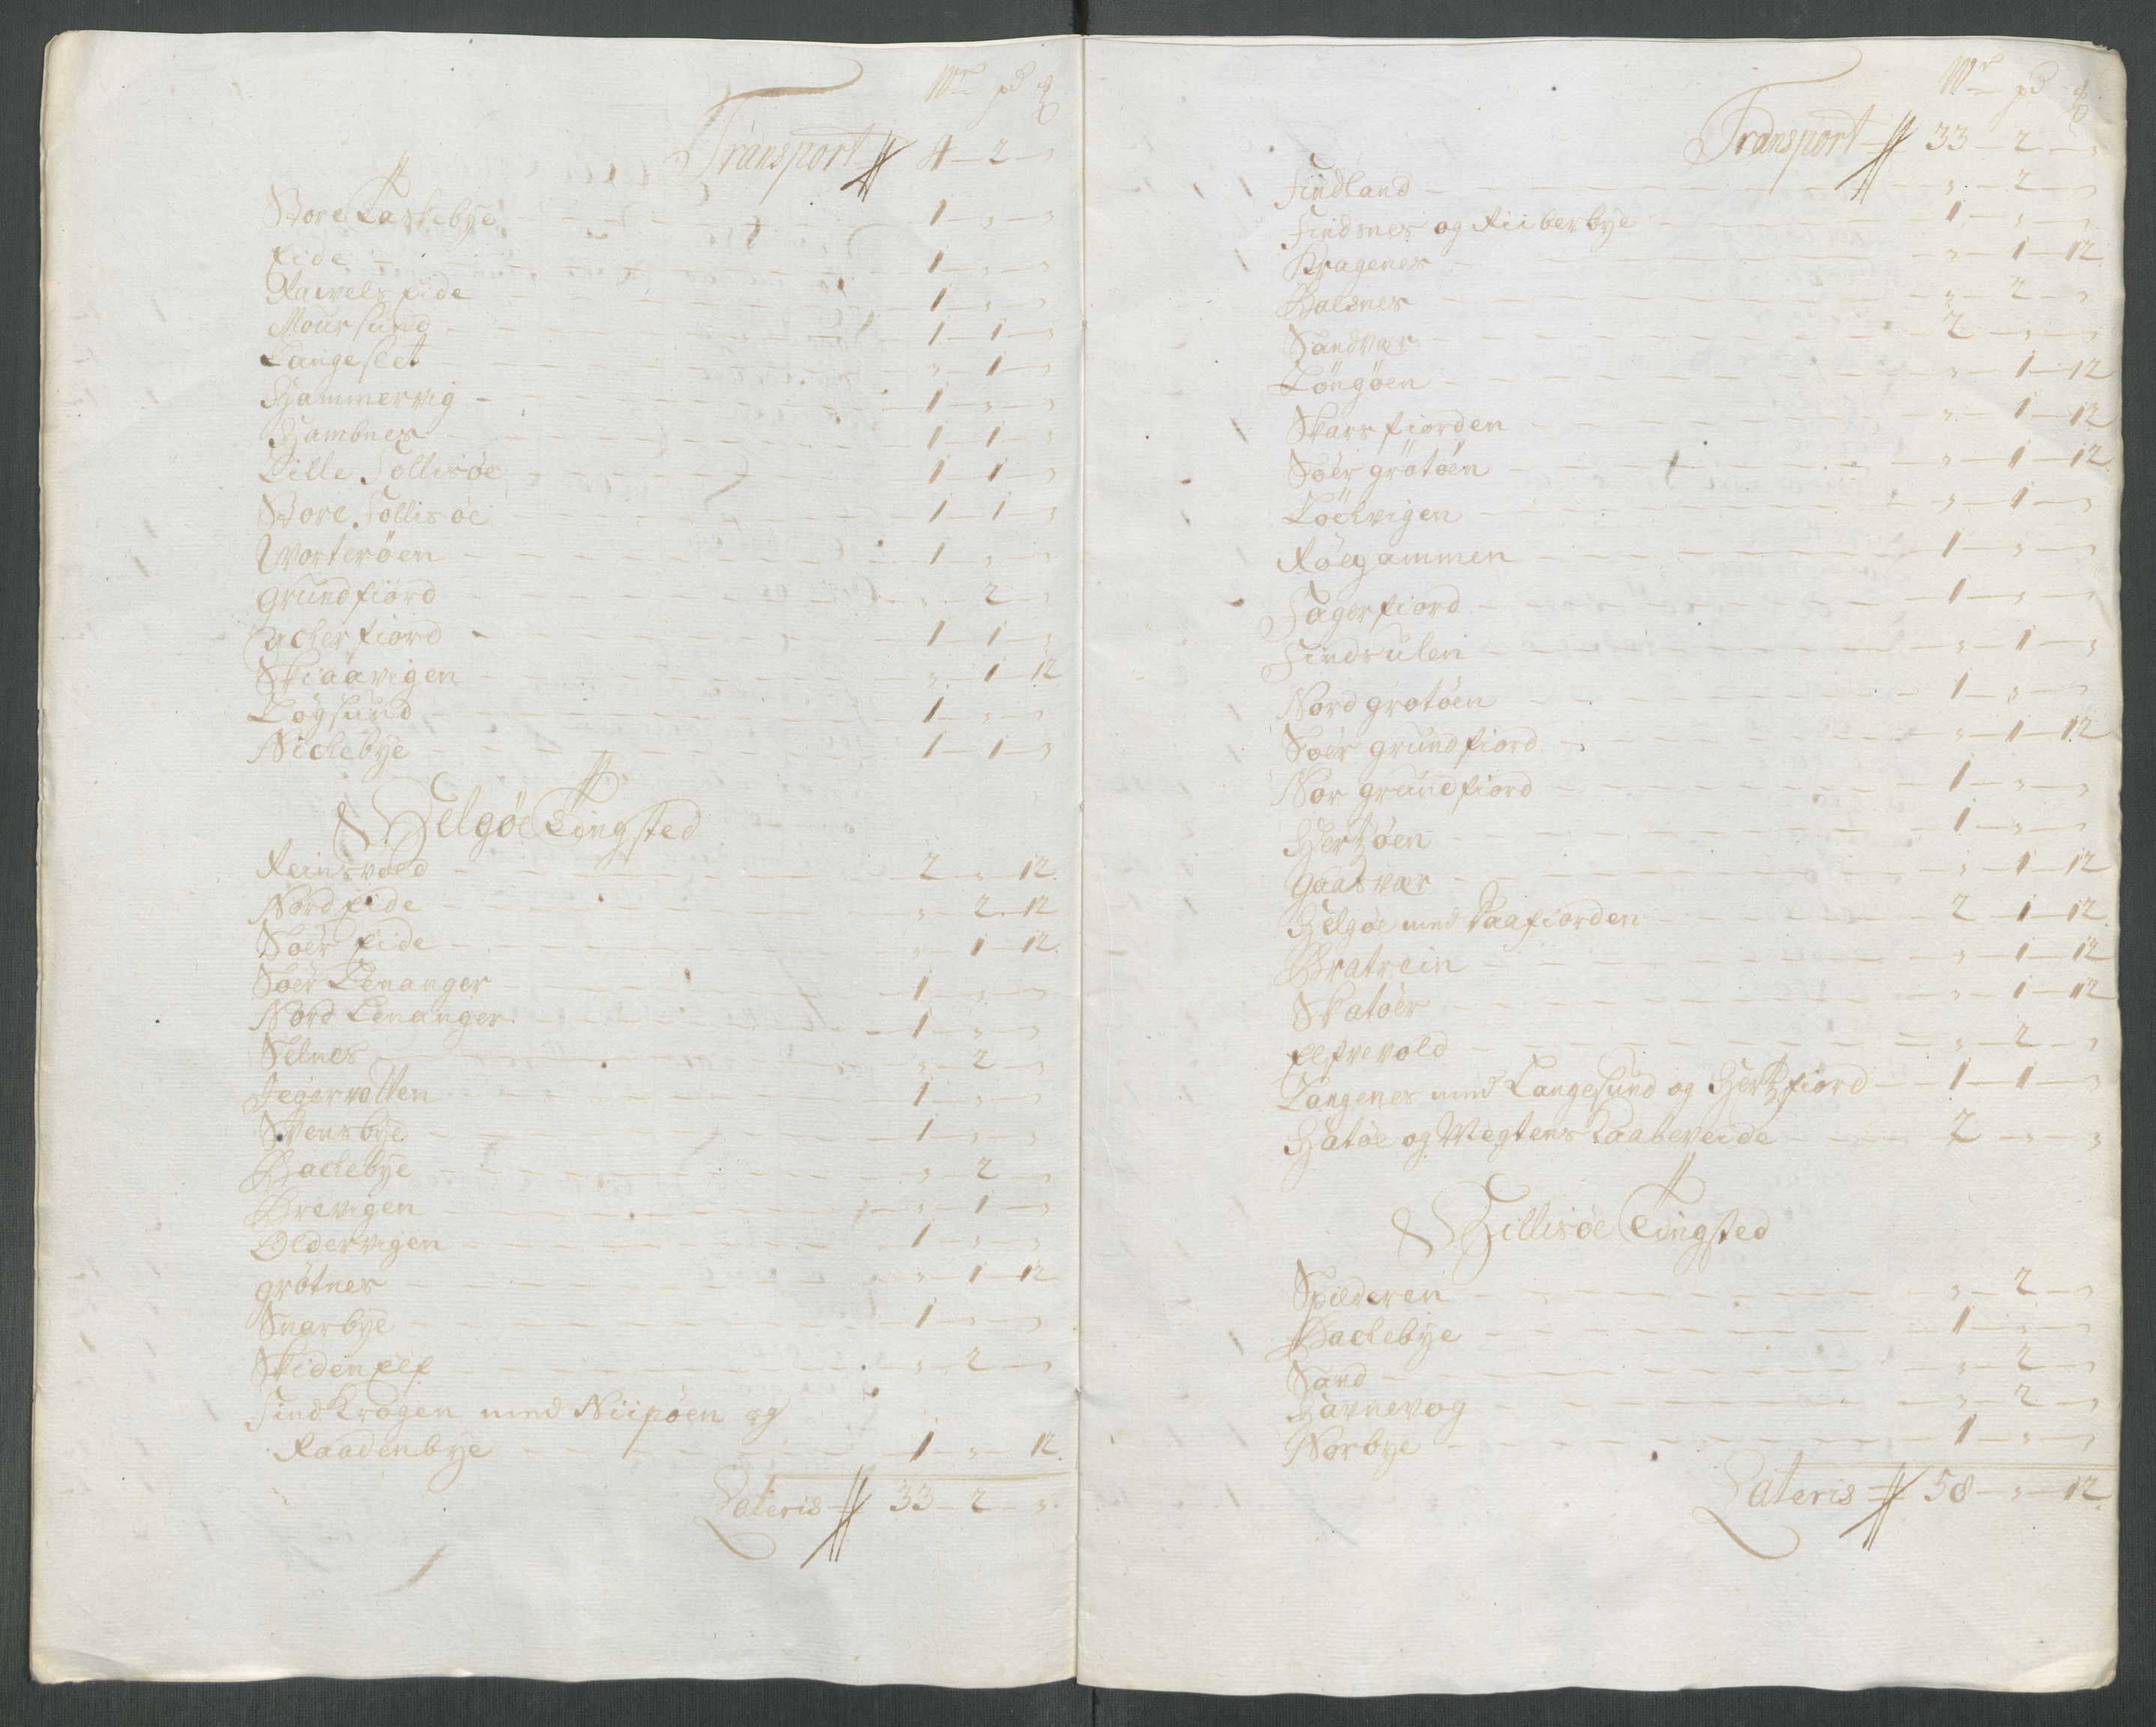 Wr pd ℔
Transport 4 – 2 – „
Store Taskebye – 1 – „ – „
Eide – 1 – „ – „
Ravels Eide – 1 – „ – „
Moursund – 1 – 1 – „
Langeslet – „ – 1 – „
Hammervig – 1 – „ – „
Hambnes – 1 – 1 – „
Lille Follisøe – 1 – 1 – „
Store Follisøe – 1 – 1 – „
Worterøen – 1 – „ – „
Grundfiord – „ – 2 – „
Acherfiord – 1 – 1 – „
Skiaavigen – „ – 1 – 12
Løgsund – 1 – „ – „
Nichebye – 1 – 1 – „
Helgøe Tingsted
Reinsvold – 2 – „ – 12
Nord Eide – „ – 2 – 12
Søer Eide – „ – 1 – 12
Søer Lenanger – 1 – „ – „
Nord Lenanger – 1 – „ – „
Selnes – „ – 2 – „
Jegervatten – 1 – „ – „
Svensbye – 1 – „ – „
Bachebye – „ – 2 – „
Brevigen – „ – 1 – „
Oldervigen – 1 – „ – „
Grøtnes – „ – 1 – 12
Snarbye – 1 – „ – „
Skiden Elf – „ – 2 – „
Findkrogen med Niipøen og
Raadenbye – 1 – „ – 12
Lateris 33 – 2 – „
Wr pd ℔
Transport 33 – 2 – „
Findland – „ – 2 – „
Findsnes og Riiberbye – 1 – „ – „
Kragenes – „ – 1 – 12
Balsnes – „ – 2 – „
Sandvær – 2 – „ – „
Løngøen – „ – 1 – 12
Skarsfiorden – „ – 1 – 12
Søer grøtøen – „ – 1 – 12
Løchvigen – „ – 1 – „
Røegammen – 1 – „ – „
Fagerfiord – 1 – „ – „
Findsulen – „ – 1 – „
Nord grøtøen – 1 – „ – „
Søer grundfiord – „ – 1 – 12
Nor grundfiord – 1 – „ – „
Hertzøen – 1 – „ – „
Gaasvær – „ – 1 – 12
Helgøe med Kaafiorden – 2 – 1 – 12
Bratrein – „ – 1 – 12
Skatøer – „ – 1 – 12
Elfvevold – „ – 2 – „
Langenes med Langesund og Hertzfiord – 1 – 1 – „
Hatøe og Wegtens Laabeveide – 2 – „ – „
Hillisøe Tingsted
Spilderen – „ – 2 – „
Bachebye – 1 – „ – „
Sand – „ – 2 – „
Havnevog – „ – 2 – „
Norbye – 1 – „ – „
Lateris 58 – „ – 12